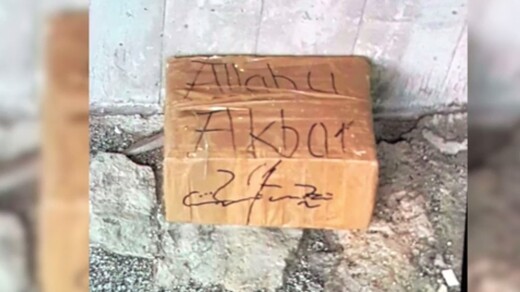 Allahu
Akbar